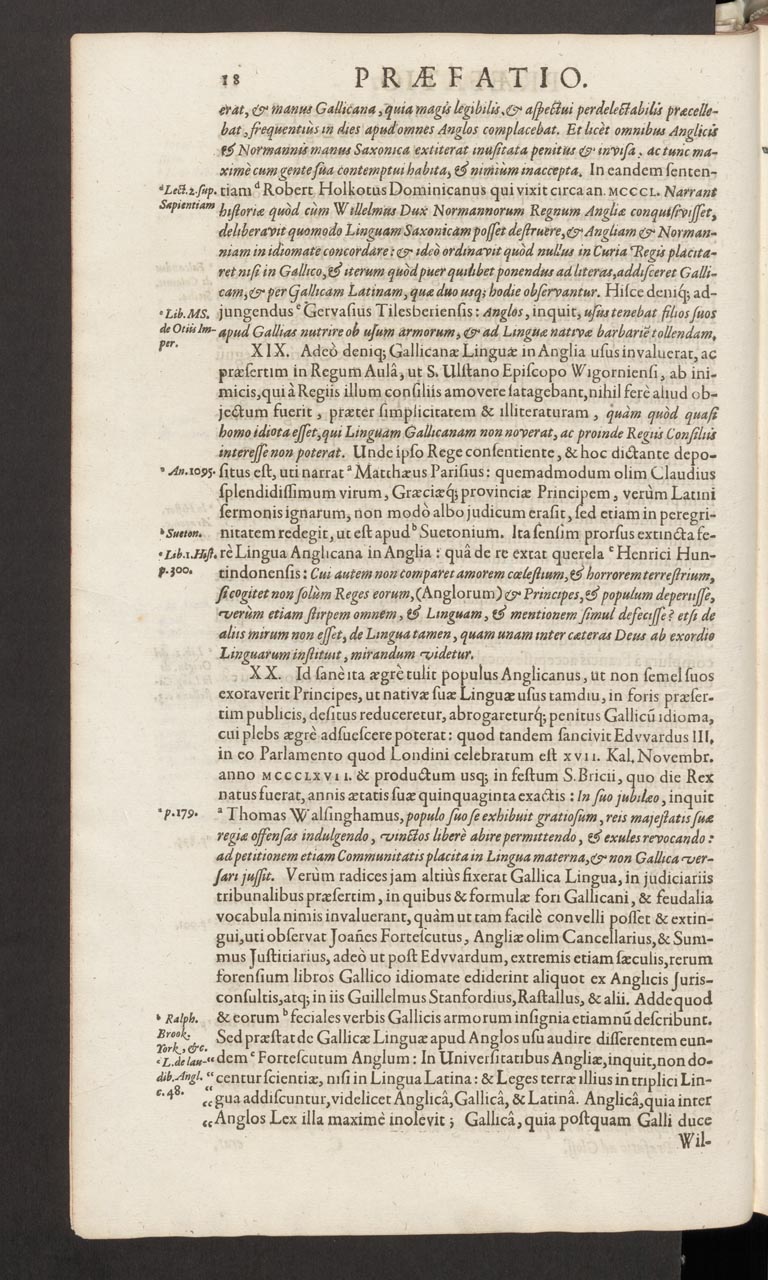 18 PRÆFATIO.
erat, & manus Gallicana, quia magis legibilis, & aſpectui perdelectabilis præcelle-
bat, frequentiùs in dies apud omnes Anglos complacebat. Et licèt omnibus Anglicis
& Normannis manus Saxonica extiterat inuſitata penitus & inviſa, ac tunc ma-
ximè cum gente ſua contemptui habita, & nimium inaccepta. In eandem ſenten-
ᵈ Lect. 2. ſup. tiam ᵈ Robert Holkotus Dominicanus qui vixit circa an. MCCCL. Narrant
Sapientiam hiſtoriæ quòd cùm Willelmus Dux Normannorum Regnum Angliæ conquiſiviſſet,
deliberavit quomodo Linguam Saxonicam poſſet deſtruere, & Angliam & Norman-
niam in idiomate concordare: & ideò ordinavit quòd nullus in Curia Regis placita-
ret niſi in Gallico, & iterum quòd puer quilibet ponendus ad literas, addiſceret Galli-
cam, & per Gallicam Latinam, quæ duo uſq; hodie obſervantur. Hiſce deniq́; ad-
ᵉ Lib. MS. jungendus ᵉ Gervaſius Tilesberienſis: Anglos, inquit, uſus tenebat filios ſuos
de Otiis Im- apud Gallias nutrire ob uſum armorum, & ad Linguæ nativæ barbariē tollendam.
per.
XIX. Adeò deniq; Gallicanæ Linguæ in Anglia uſus invaluerat, ac
præſertim in Regum Aulâ, ut S. Ulſtano Epiſcopo Wigornienſi, ab ini-
micis, qui à Regiis illum conſiliis amovere ſatagebant, nihil ferè aliud ob-
jectum fuerit, præter ſimplicitatem & illiteraturam, quàm quòd quaſi
homo idiota eſſet, qui Linguam Gallicanam non noverat, ac proinde Regiis Conſiliis
intereſſe non poterat. Unde ipſo Rege conſentiente, & hoc dictante depo-
ᵃ An. 1095. ſitus eſt, uti narrat ᵃ Matthæus Pariſius: quemadmodum olim Claudius
ſplendidiſſimum virum, Græciæq́; provinciæ Principem, verùm Latini
ſermonis ignarum, non modò albo judicum eraſit, ſed etiam in peregri-
ᵇ Sueton. nitatem redegit, ut eſt apud ᵇ Suetonium. Ita ſenſim prorſus extincta fe-
ᶜ Lib. 1. Hiſt. rè Lingua Anglicana in Anglia: quâ de re extat querela ᶜ Henrici Hun-
p. 300. tindonenſis: Cui autem non comparet amorem cœleſtium, & horrorem terreſtrium,
ſi cogitet non ſolùm Reges eorum, (Anglorum) & Principes, & populum deperiiſſe,
verùm etiam ſtirpem omnem, & Linguam, & mentionem ſimul defeciſſe? etſi de
aliis mirum non eſſet, de Lingua tamen, quam unam inter cæteras Deus ab exordio
Linguarum inſtituit, mirandum videtur.
XX. Id ſanè ita ægrè tulit populus Anglicanus, ut non ſemel ſuos
exoraverit Principes, ut nativæ ſuæ Linguæ uſus tamdiu, in foris præſer-
tim publicis, deſitus reduceretur, abrogareturq́; penitus Gallicū idioma,
cui plebs ægrè adſueſcere poterat: quod tandem ſancivit Edvvardus III.
in eo Parlamento quod Londini celebratum eſt XVII. Kal. Novembr.
anno MCCCLXVII. & productum usq; in feſtum S. Bricii, quo die Rex
natus fuerat, annis ætatis ſuæ quinquaginta exactis: In ſuo jubilæo, inquit
ᵃ p. 179. ᵃ Thomas Walſinghamus, populo ſuo ſe exhibuit gratioſum, reis majeſtatis ſuæ
regiæ offenſas indulgendo, vinctos liberè abire permittendo, & exules revocando:
ad petitionem etiam Communitatis placita in Lingua materna, & non Gallica ver-
ſari juſſit. Verùm radices jam altiùs fixerat Gallica Lingua, in judiciariis
tribunalibus præſertim, in quibus & formulæ fori Gallicani, & feudalia
vocabula nimis invaluerant, quàm ut tam facilè convelli poſſet & extin-
gui, uti obſervat Joañes Forteſcutus, Angliæ olim Cancellarius, & Sum-
mus Juſtitiarius, adeò ut poſt Edvvardum, extremis etiam ſæculis, rerum
forenſium libros Gallico idiomate ediderint aliquot ex Anglicis Juris-
conſultis, atq; in iis Guillelmus Stanfordius, Raſtallus, & alii. Adde quod
ᵇ Ralph. & eorum ᵇ feciales verbis Gallicis armorum inſignia etiamnū deſcribunt.
Brook. Sed præſtat de Gallicæ Linguæ apud Anglos uſu audire diſſerentem eun-
York, &c.
ᶜ L. de lau- “ dem ᶜ Forteſcutum Anglum: In Univerſitatibus Angliæ, inquit, non do-
dib. Angl. “ centur ſcientiæ, niſi in Lingua Latina: & Leges terræ illius in triplici Lin-
c. 48. “ gua addiſcuntur, videlicet Anglicâ, Gallicâ, & Latinâ. Anglicâ, quia inter
“ Anglos Lex illa maximè inolevit; Gallicâ, quia poſtquam Galli duce
Wil-